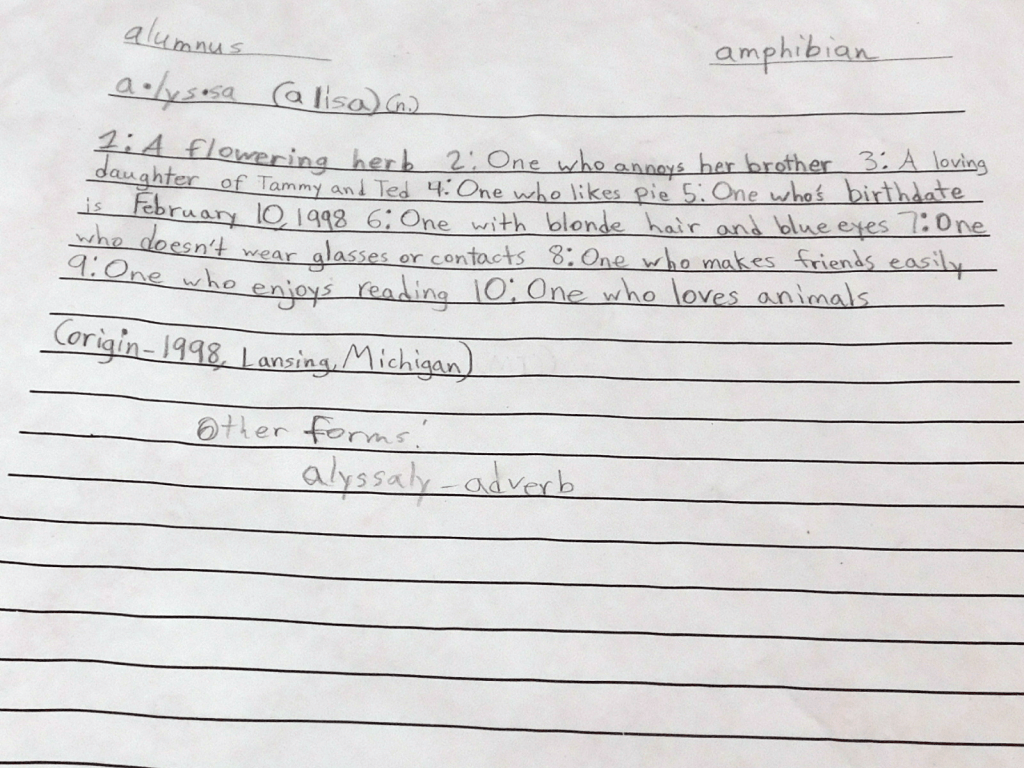 alumnus amphibian
a•lys•sa (alisa) (n.)
1: A flowering herb 2: One who annoys her brother 3: A loving
daughter of Tammy and Ted 4: One who likes pie 5: One who's birthdate
is February 10, 1998 6: One with blonde hair and blue eyes 7: One
who doesn't wear glasses or contacts 8: One who makes friends easily
9: One who enjoys reading 10: One who loves animals
(origin-1998, Lansing, Michigan)
Other forms:
alyssaly - adverb